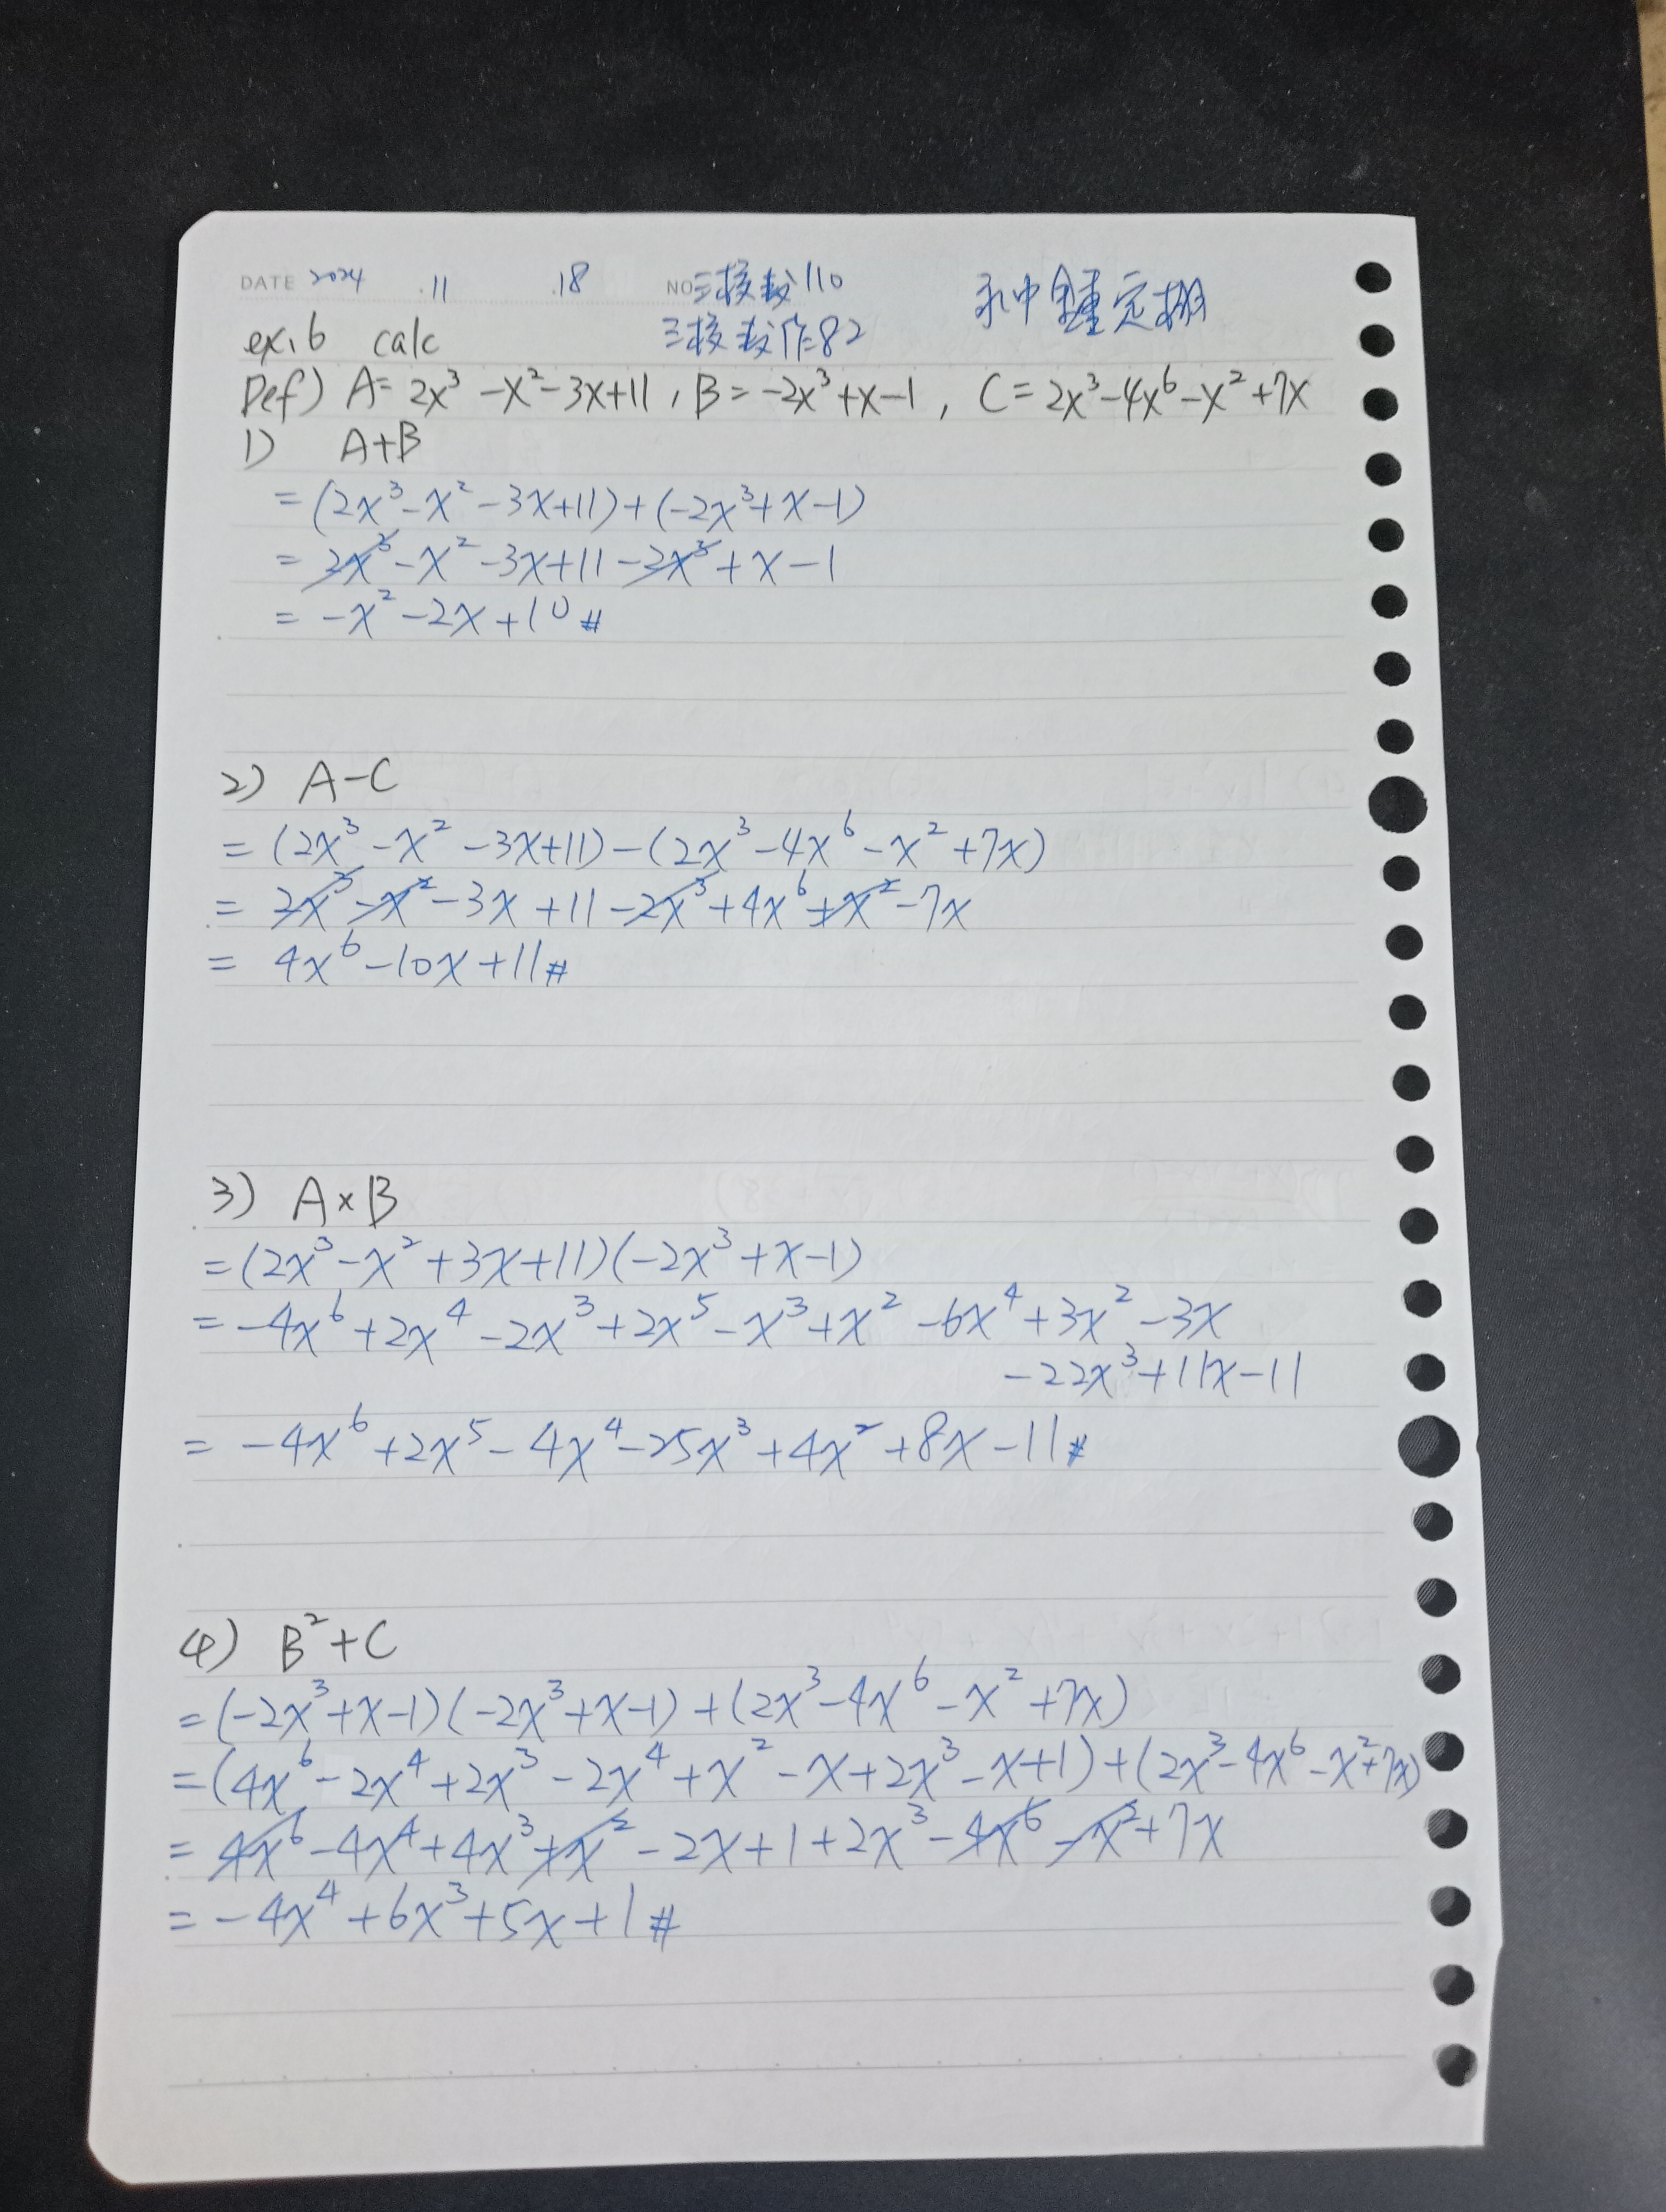 DATE 2024 .11 .18 NO 三授数110 永中鍾定栩
ex.6 calc 三授数作82
Def) A=2x³-x²-3x+11, B=-2x³+x-1, C=2x³-4x⁶-x²+7x
1) A+B
=(2x³-x²-3x+11)+(-2x³+x-1)
=2x³-x²-3x+11-2x³+x-1
=-x²-2x+10#
2) A-C
=(2x³-x²-3x+11)-(2x³-4x⁶-x²+7x)
=2x³-x²-3x+11-2x³+4x⁶+x²-7x
=4x⁶-10x+11#
3) A×B
=(2x³-x²+3x+11)(-2x³+x-1)
=-4x⁶+2x⁴-2x³+2x⁵-x³+x²-6x⁴+3x²-3x
-22x³+11x-11
=-4x⁶+2x⁵-4x⁴-25x³+4x²+8x-11#
4) B²+C
=(-2x³+x-1)(-2x³+x-1)+(2x³-4x⁶-x²+7x)
=(4x⁶-2x⁴+2x³-2x⁴+x²-x+2x³-x+1)+(2x³-4x⁶-x²+7x)
=4x⁶-4x⁴+4x³+x²-2x+1+2x³-4x⁶-x²+7x
=-4x⁴+6x³+5x+1#